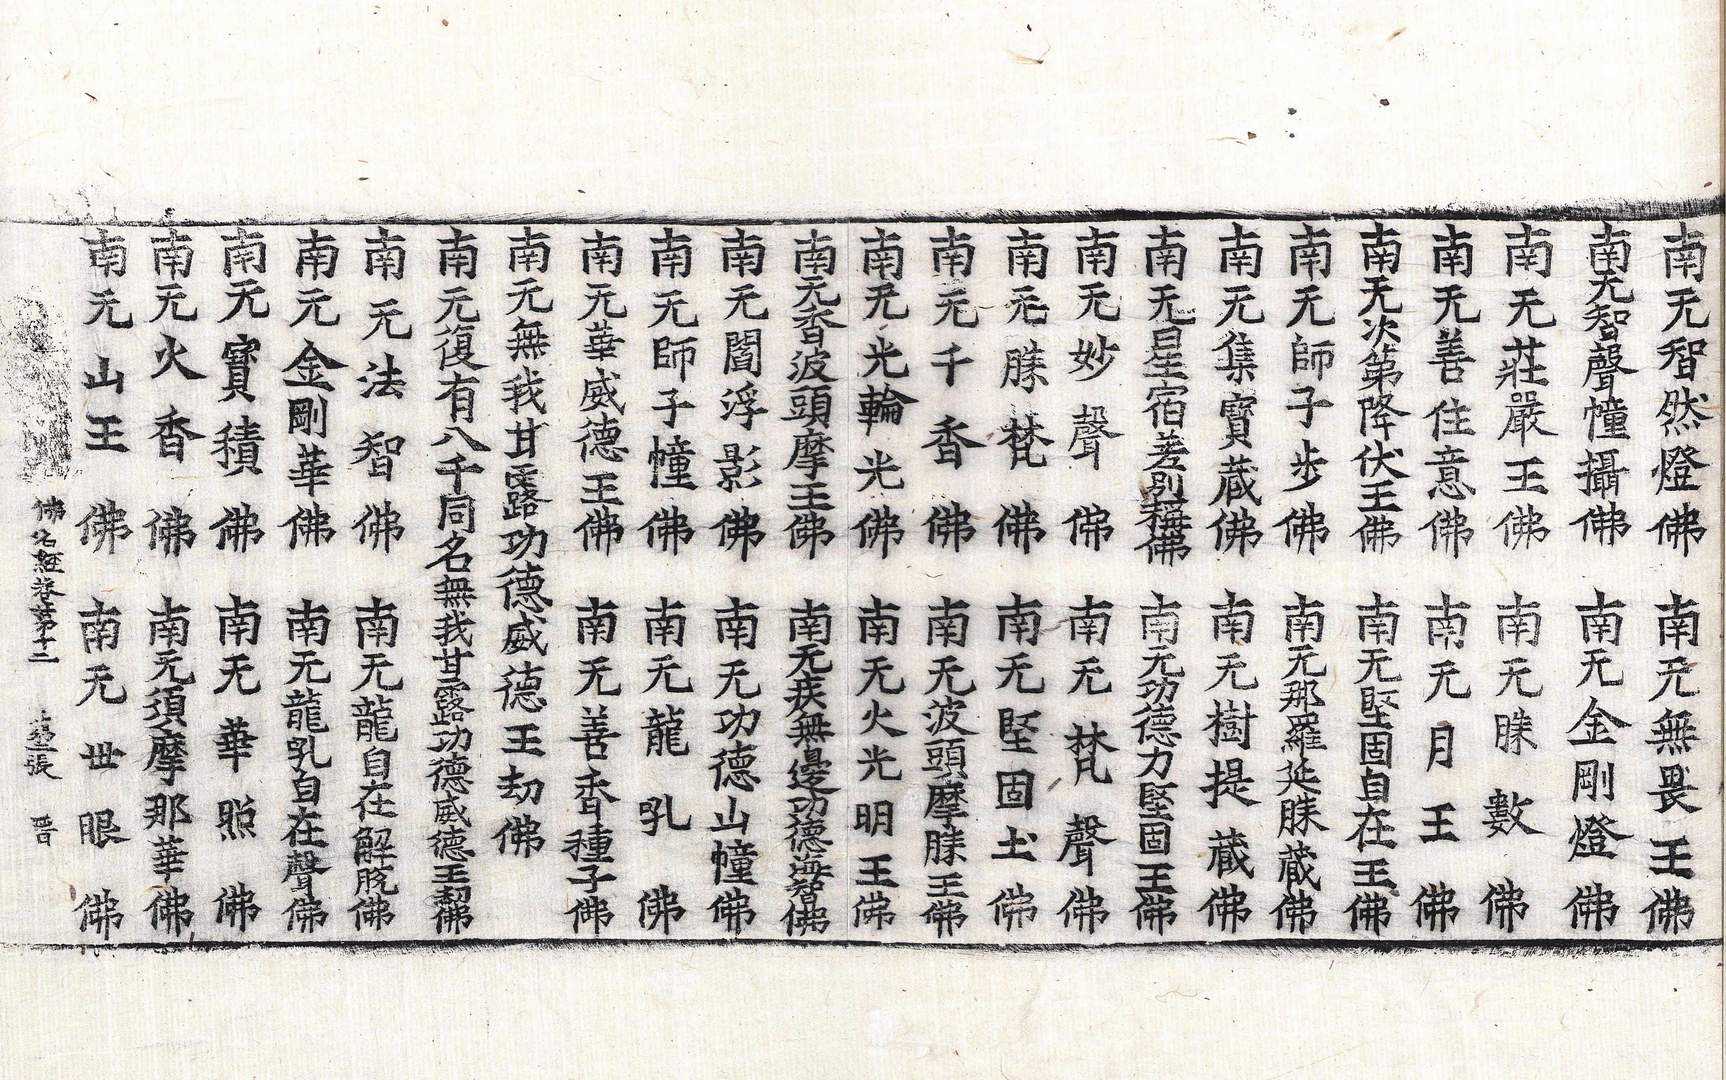 南无智然燈佛 南无無畏王佛
南无智聲幢攝佛 南无金剛燈佛
南无莊嚴王佛 南无勝數佛
南无善住意佛 南无月王佛
南无次第降伏王佛 南无堅固自在王佛
南无師子步佛 南无那羅延勝藏佛
南无集寶藏佛 南无樹提藏佛
南无星宿差別稱佛 南无功德力堅固王佛
南无妙聲佛 南无梵聲佛
南无勝梵佛 南无堅固土佛
南无千香佛 南无波頭摩勝王佛
南无光輪光佛 南无火光明王佛
南无香波頭摩王佛 南无疾無邊功德海智佛
南无閻浮影佛 南无功德山幢佛
南无師子幢佛 南无龍吼佛
南无華威德王佛 南无善香種子佛
南无無我甘露功德威德王劫佛
南无復有八千同名無我甘露功德威德王劫佛
南无法智佛 南无龍自在解脫佛
南无金剛華佛 南无龍吼自在聲佛
南无寶積佛 南无華照佛
南无火香佛 南无須摩那華佛
南无山王佛 南无世眼佛
佛名經卷第十二 張